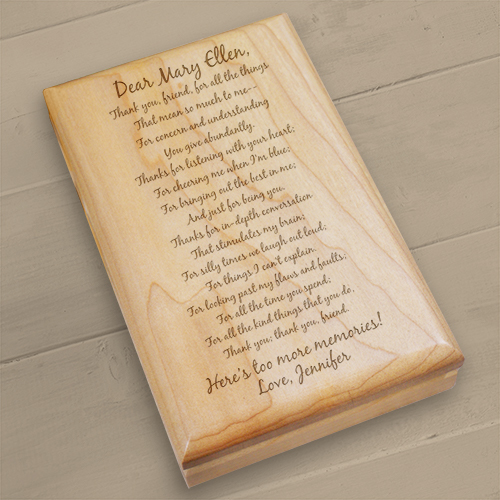 Dear Mary Ellen,
Thank you, friend, for all the things
That mean so much to me--
For concern and understanding
You give abundantly.
Thanks for listening with your heart;
For cheering me when I'm blue;
For bringing out the best in me;
And just for being you.
Thanks for in-depth conversation
That stimulates my brain;
For silly times we laugh out loud;
For things I can't explain.
For looking past my flaws and faults;
For all the time you spend;
For all the kind things that you do,
Thank you; thank you, friend.
Here's too more memories!
Love, Jennifer